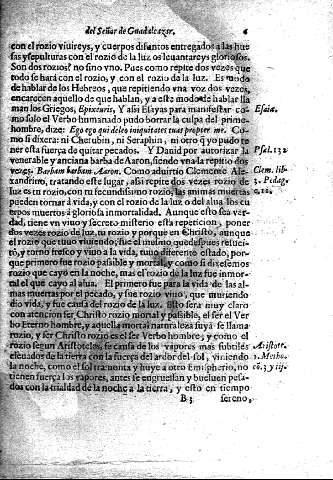 del Señor de Guadalcazar. 6
con el rozio viuireys, y cuerpos difuntos entregados a las hue
sas y sepulturas con el rozio de la luz os leuantareys gloriosos.
Son dos rozios? no sino vno. Pues como repite dos vezes que
todo se harà con el rozio, y con el rozio de la luz. Es modo
de hablar de los Hebreos, que repitiendo vna voz dos vezes,
encarecen aquello de que hablan, y a este modo de hablar lla
man los Griegos, Epixeuxis, Y assi Esayas para manifestar co
mo solo el Verbo humanado pudo borrar la culpa del prime-
ro hombre, dize: Ego ego qui deleo iniquitates tuas propter me. Co-
mo si dixera: ni Cherubin, ni Seraphin, ni otro q̃ yo pudo te
ner esta fuerça de quitar pecados. Y Dauid por autorizar la
venerable y anciana barba de Aaron, siendo vna la repitio dos
vezes. Barbam barbam Aaron. Como aduirtio Clemente Ale-
xandrino, tratando este lugar, assi repite dos vezes rozio de
luz es rozio, con tu fecundissimo rozio, las animas muertas
pueden tornar à vida, y con el rozio de la luz o del alua los cu
erpos muertos à gloriosa inmortalidad. Aunque esto sea ver-
dad, tiene vn viuo y secreto misterio esta repeticion, poner
dos vezes rozio de luz, tu rozio y porque en Christo, aunque
el rozio que tuuo viuiendo, fue el mismo que despues resuci-
tò, y torno fresco y viuo a la vida, tuuo diferente estado, por-
que primero fue rozio passible y mortal, y como si dixessemos
rozio que cayò en la noche, mas el rozio de la luz fue inmor-
tal el que cayò al alua. El primero fue para la vida de las al-
mas muertas por el pecado, y fue rozio viuo, que muriendo
dio vida, y fue causa del rozio de la luz. Esto sera muy claro
con atencion ser Christo rozio mortal y passible, el ser el Ver
bo Eterno hombre, y aquella mortal naturaleza suya se llama
rozio, y ser Christo rozio es el ser Verbo hombre; y como el
rozio segun Aristoteles, se causa de los vapores mas subtiles
eleuados de la tierra con la fuerça del ardor del sol, viniendo
la noche, como el sol tramonta y huye a otro Emispherio, no
tienen fuerça los vapores, antes se engruessan y bueluen pesa-
dos con la frialdad de la noche a la tierra, y esto en tiempo
B 3 sereno,
Esaia.
Psal. 132
Clem. lib.
Pedag.
Aristote.